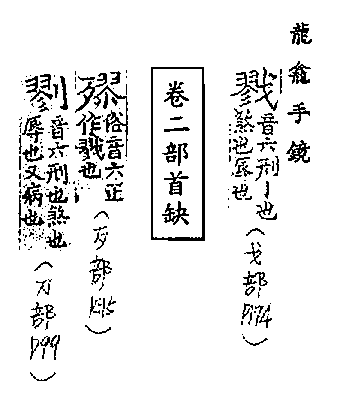 龍龕手鏡
戮音六刑丨也
煞也辱也
(戈部P174)
卷二部首缺
俗音六正
作戮也
(歹部P515)
剹音六刑也煞也
辱也又病也
(刀部P99)